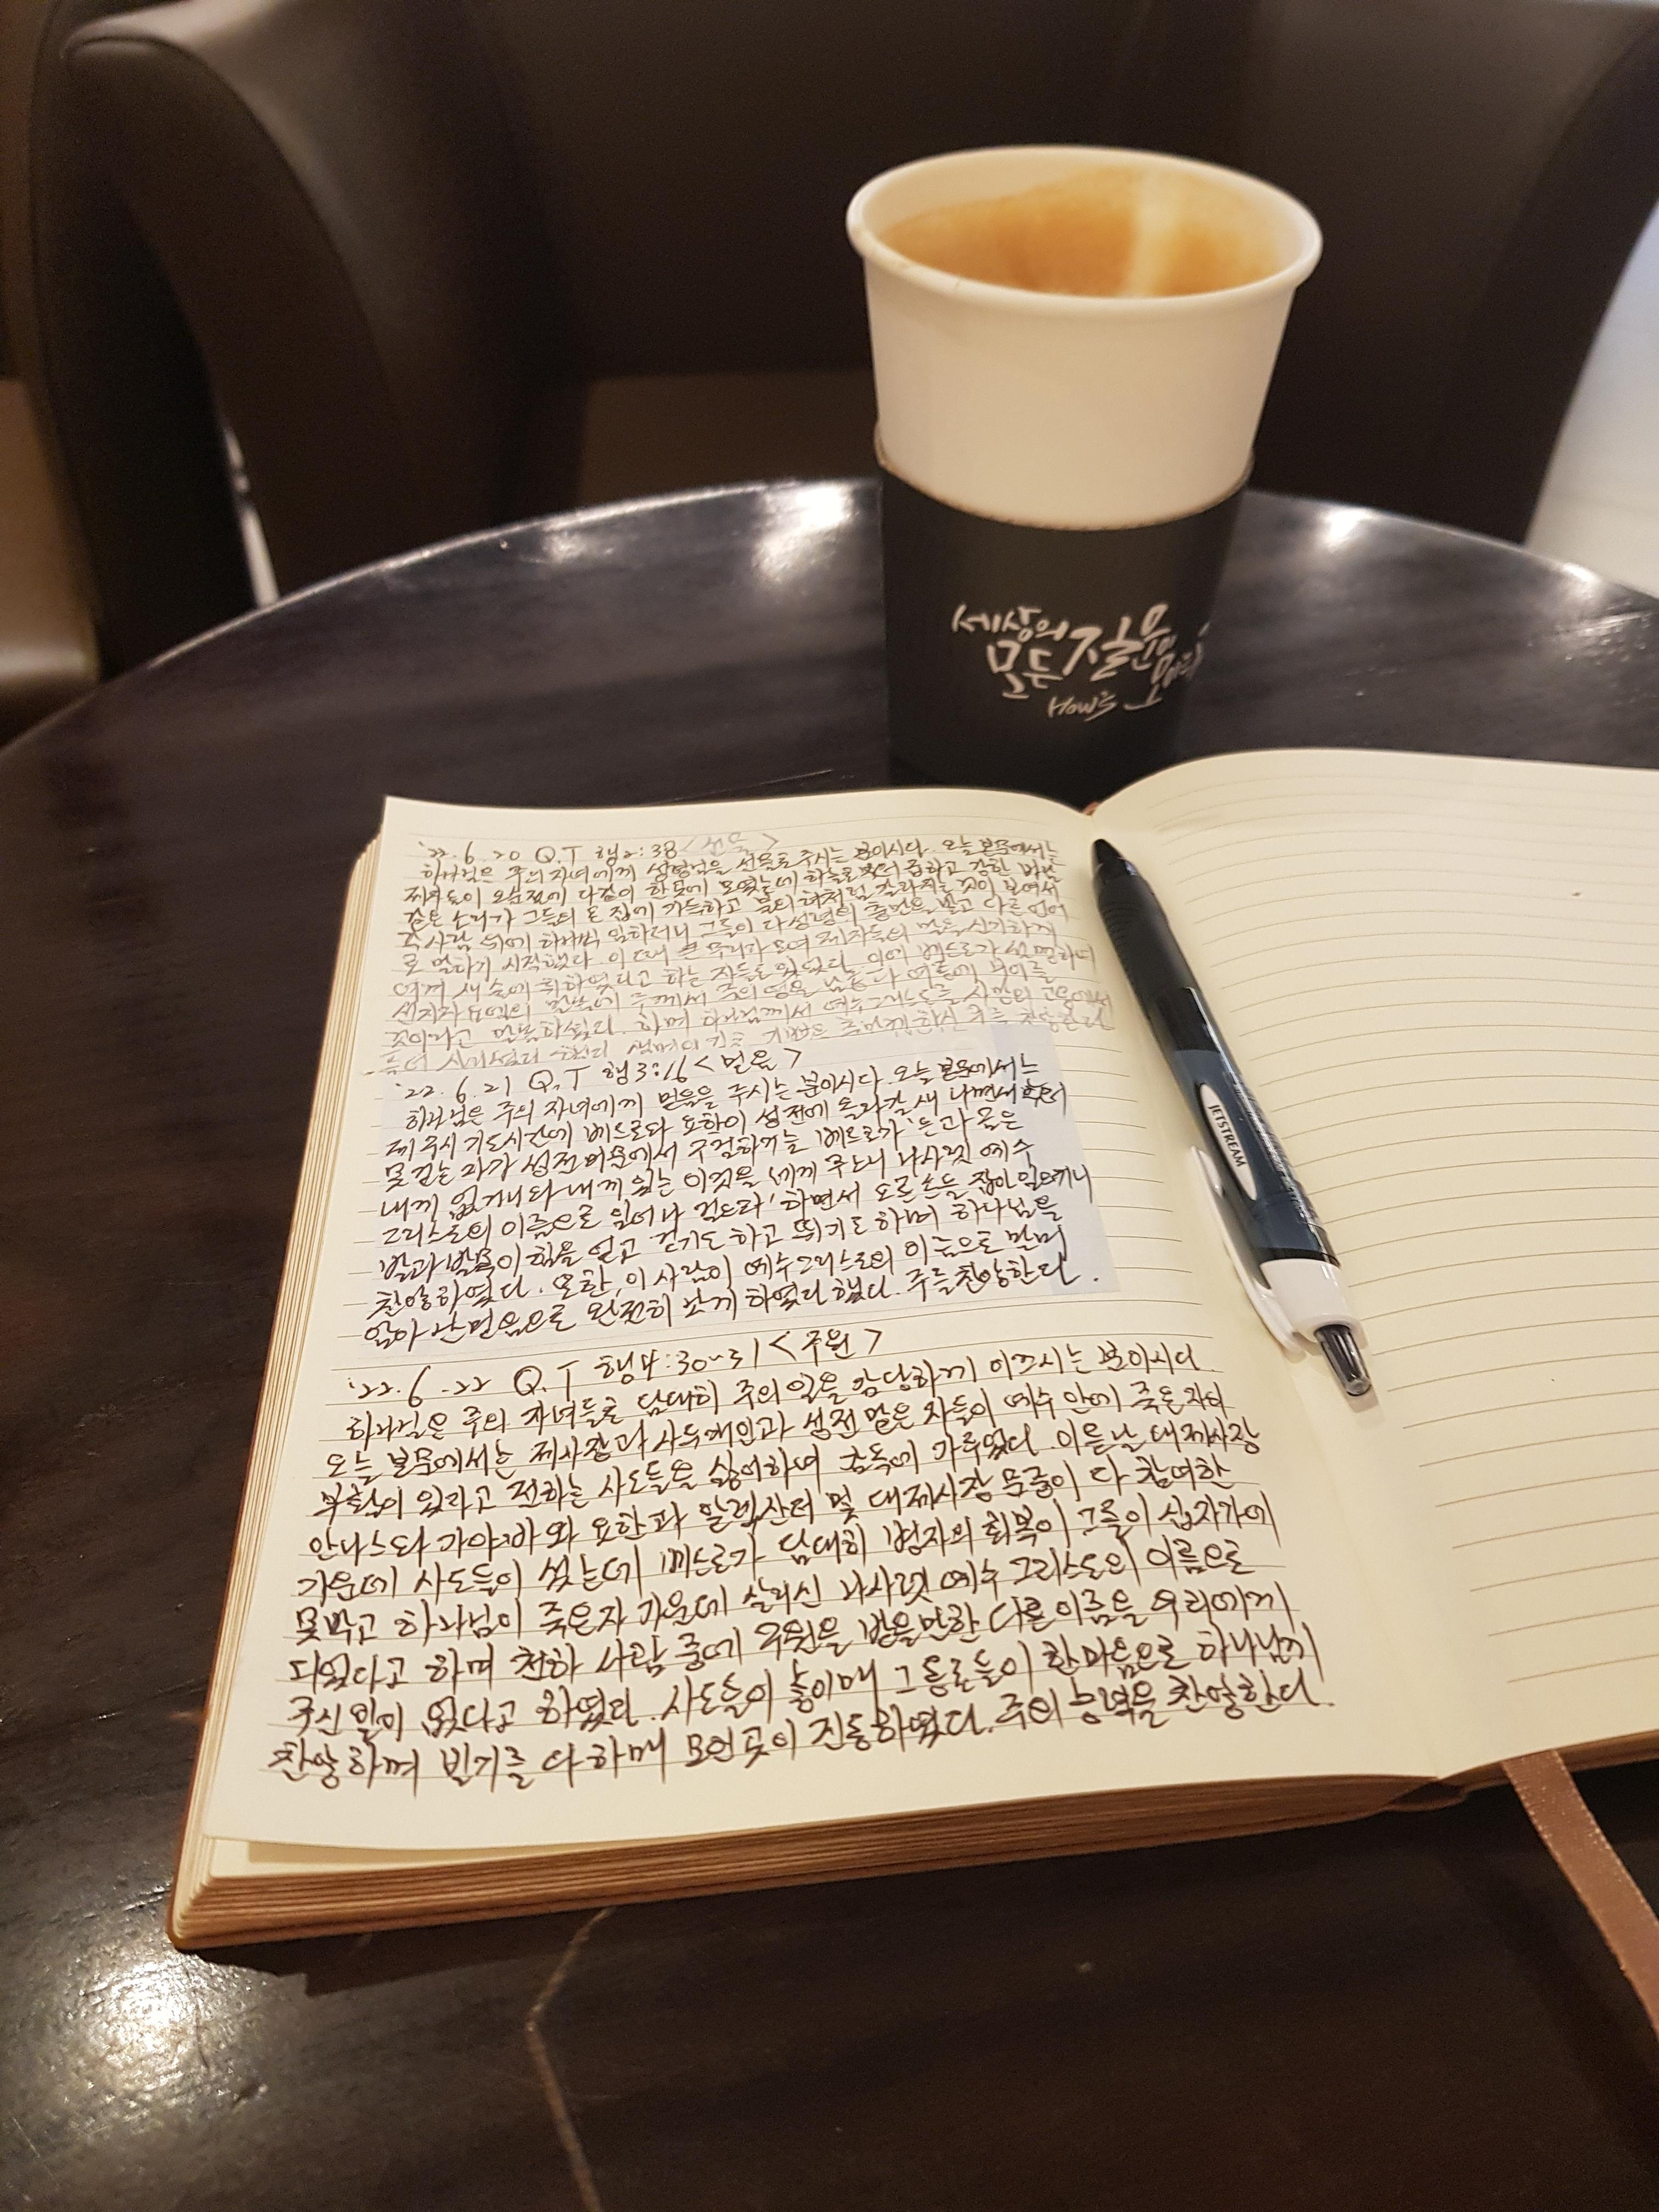 세상의
모든 질문
How's
JETSTREAM
'22.6.20 Q.T 행2:38 <선물>
하나님은 주의 자녀에게 성령님을 선물로 주시는 분이시다. 오늘 본문에서는
제자들이 오순절에 다같이 한곳에 모였는데 하늘로부터 급하고 강한 바람
같은 소리가 그들의 온 집에 가득하고 불의 혀처럼 갈라지는 것이 보여서
각 사람 위에 하나씩 임하더니 그들이 다 성령의 충만을 받고 다른 언어
로 말하기 시작했다. 이 때 큰 무리가 모여 제자들의 말을 신기하게
여겨 새 술에 취하였다고 하는 자들도 있었다. 이에 베드로가 설명하며
선지자 요엘의 말씀에 주께서 주의 영을
것이라고 말씀하셨다. 하며 하나님께서 예수 그리스도를 사망의 고통에서
풀어 살리셨다
'22.6.21 Q.T 행3:16 <믿음>
하나님은 주의 자녀에게 믿음을 주시는 분이시다. 오늘 본문에서는
제 구시 기도시간에 베드로와 요한이 성전에 올라갈새 나면서
못 걷는 자가 성전 미문에서 구걸하거늘 베드로가 '은과 금은
내게 없거니와 내게 있는 이것을 네게 주노니 나사렛 예수
그리스도의 이름으로 일어나 걸으라' 하면서 오른손을 잡아 일으키니
발과 발목이 힘을 얻고 걷기도 하고 뛰기도 하며 하나님을
찬양하였다. 또한, 이 사람이 예수 그리스도의 이름으로 말미
암아 난 믿음으로 완전히 낫게 하였다 했다. 주를 찬양한다.
'22.6.22 Q.T 행4:30~31 <구원>
하나님은 주의 자녀들로 담대히 주의 일을 감당하게 이끄시는 분이시다.
오늘 본문에서는 제사장과 사두개인과 성전 맡은 자들이 예수 안에 죽은 자의
부활이 있다고 전하는 사도들을 싫어하여 감옥에 가두었다. 이튿날 대제사장
안나스와 가야바와 요한과 알렉산더 및 대제사장 문중이 다 참여한
가운데 사도들이 섰는데 베드로가 담대히 병자의 회복이 그들이 십자가에
못박고 하나님이 죽은자 가운데 살리신 나사렛 예수 그리스도의 이름으로
되었다고 하며 천하 사람 중에 구원을 받을만한 다른 이름을 우리에게
주신 일이 없다고 하였다. 사도들이 놓이매 그 동료들이 한마음으로 하나님께
찬양하며 빌기를 다하매 모인 곳이 진동하였다. 주의 능력을 찬양한다.